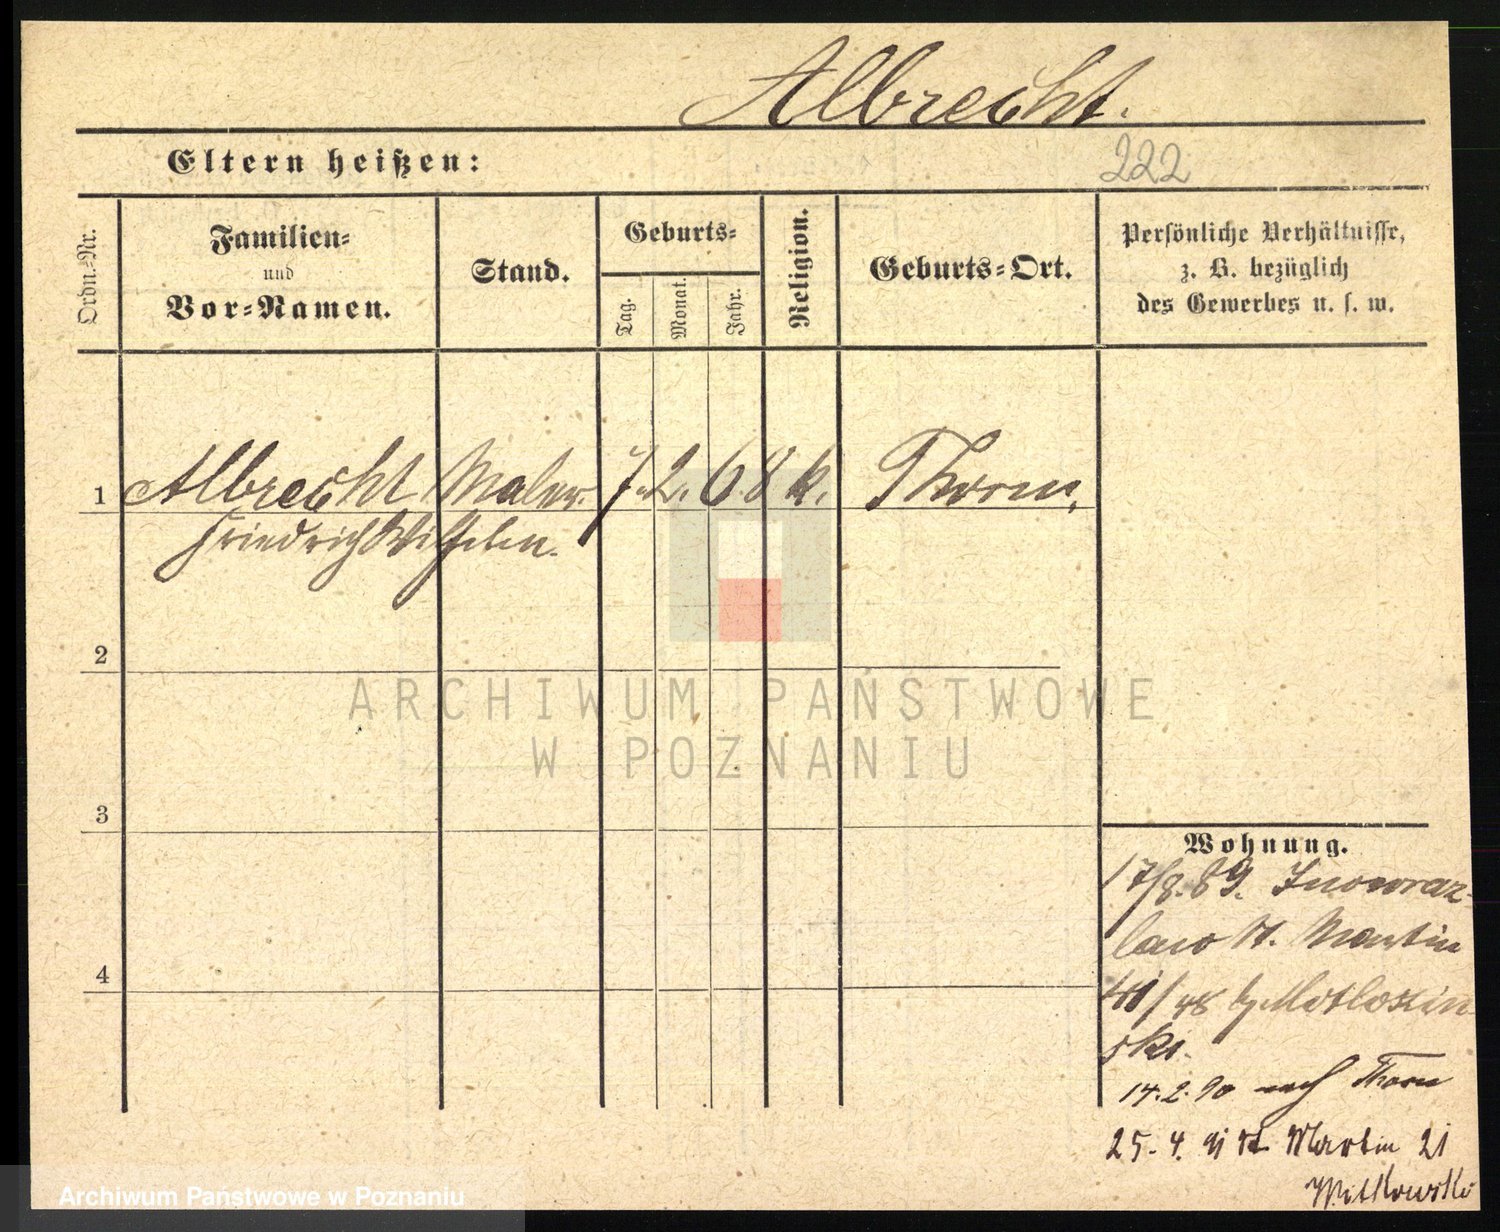 Albrecht.
Eltern heißen:
222
Ordn.-Nr.
Familien-
und
Vor-Namen.
Stand.
Geburts-
Tag.
Monat.
Jahr.
Religion.
Geburts-Ort.
Persönliche Verhältnisse,
z. B. bezüglich
des Gewerbes u. s. w.
1 Albrecht Maler. 7. 2. 68 k. Thorn.
Friedrich Wilhelm.
2
ARCHIWUM PAŃSTWOWE
W POZNANIU
3
Wohnung.
17/8. 89. Inowraz-
law St. Martin
4
/48
ski.
14.2.90 nach Thorn
25.4.91 St. Martin 21
Witkowski
Archiwum Państwowe w Poznaniu